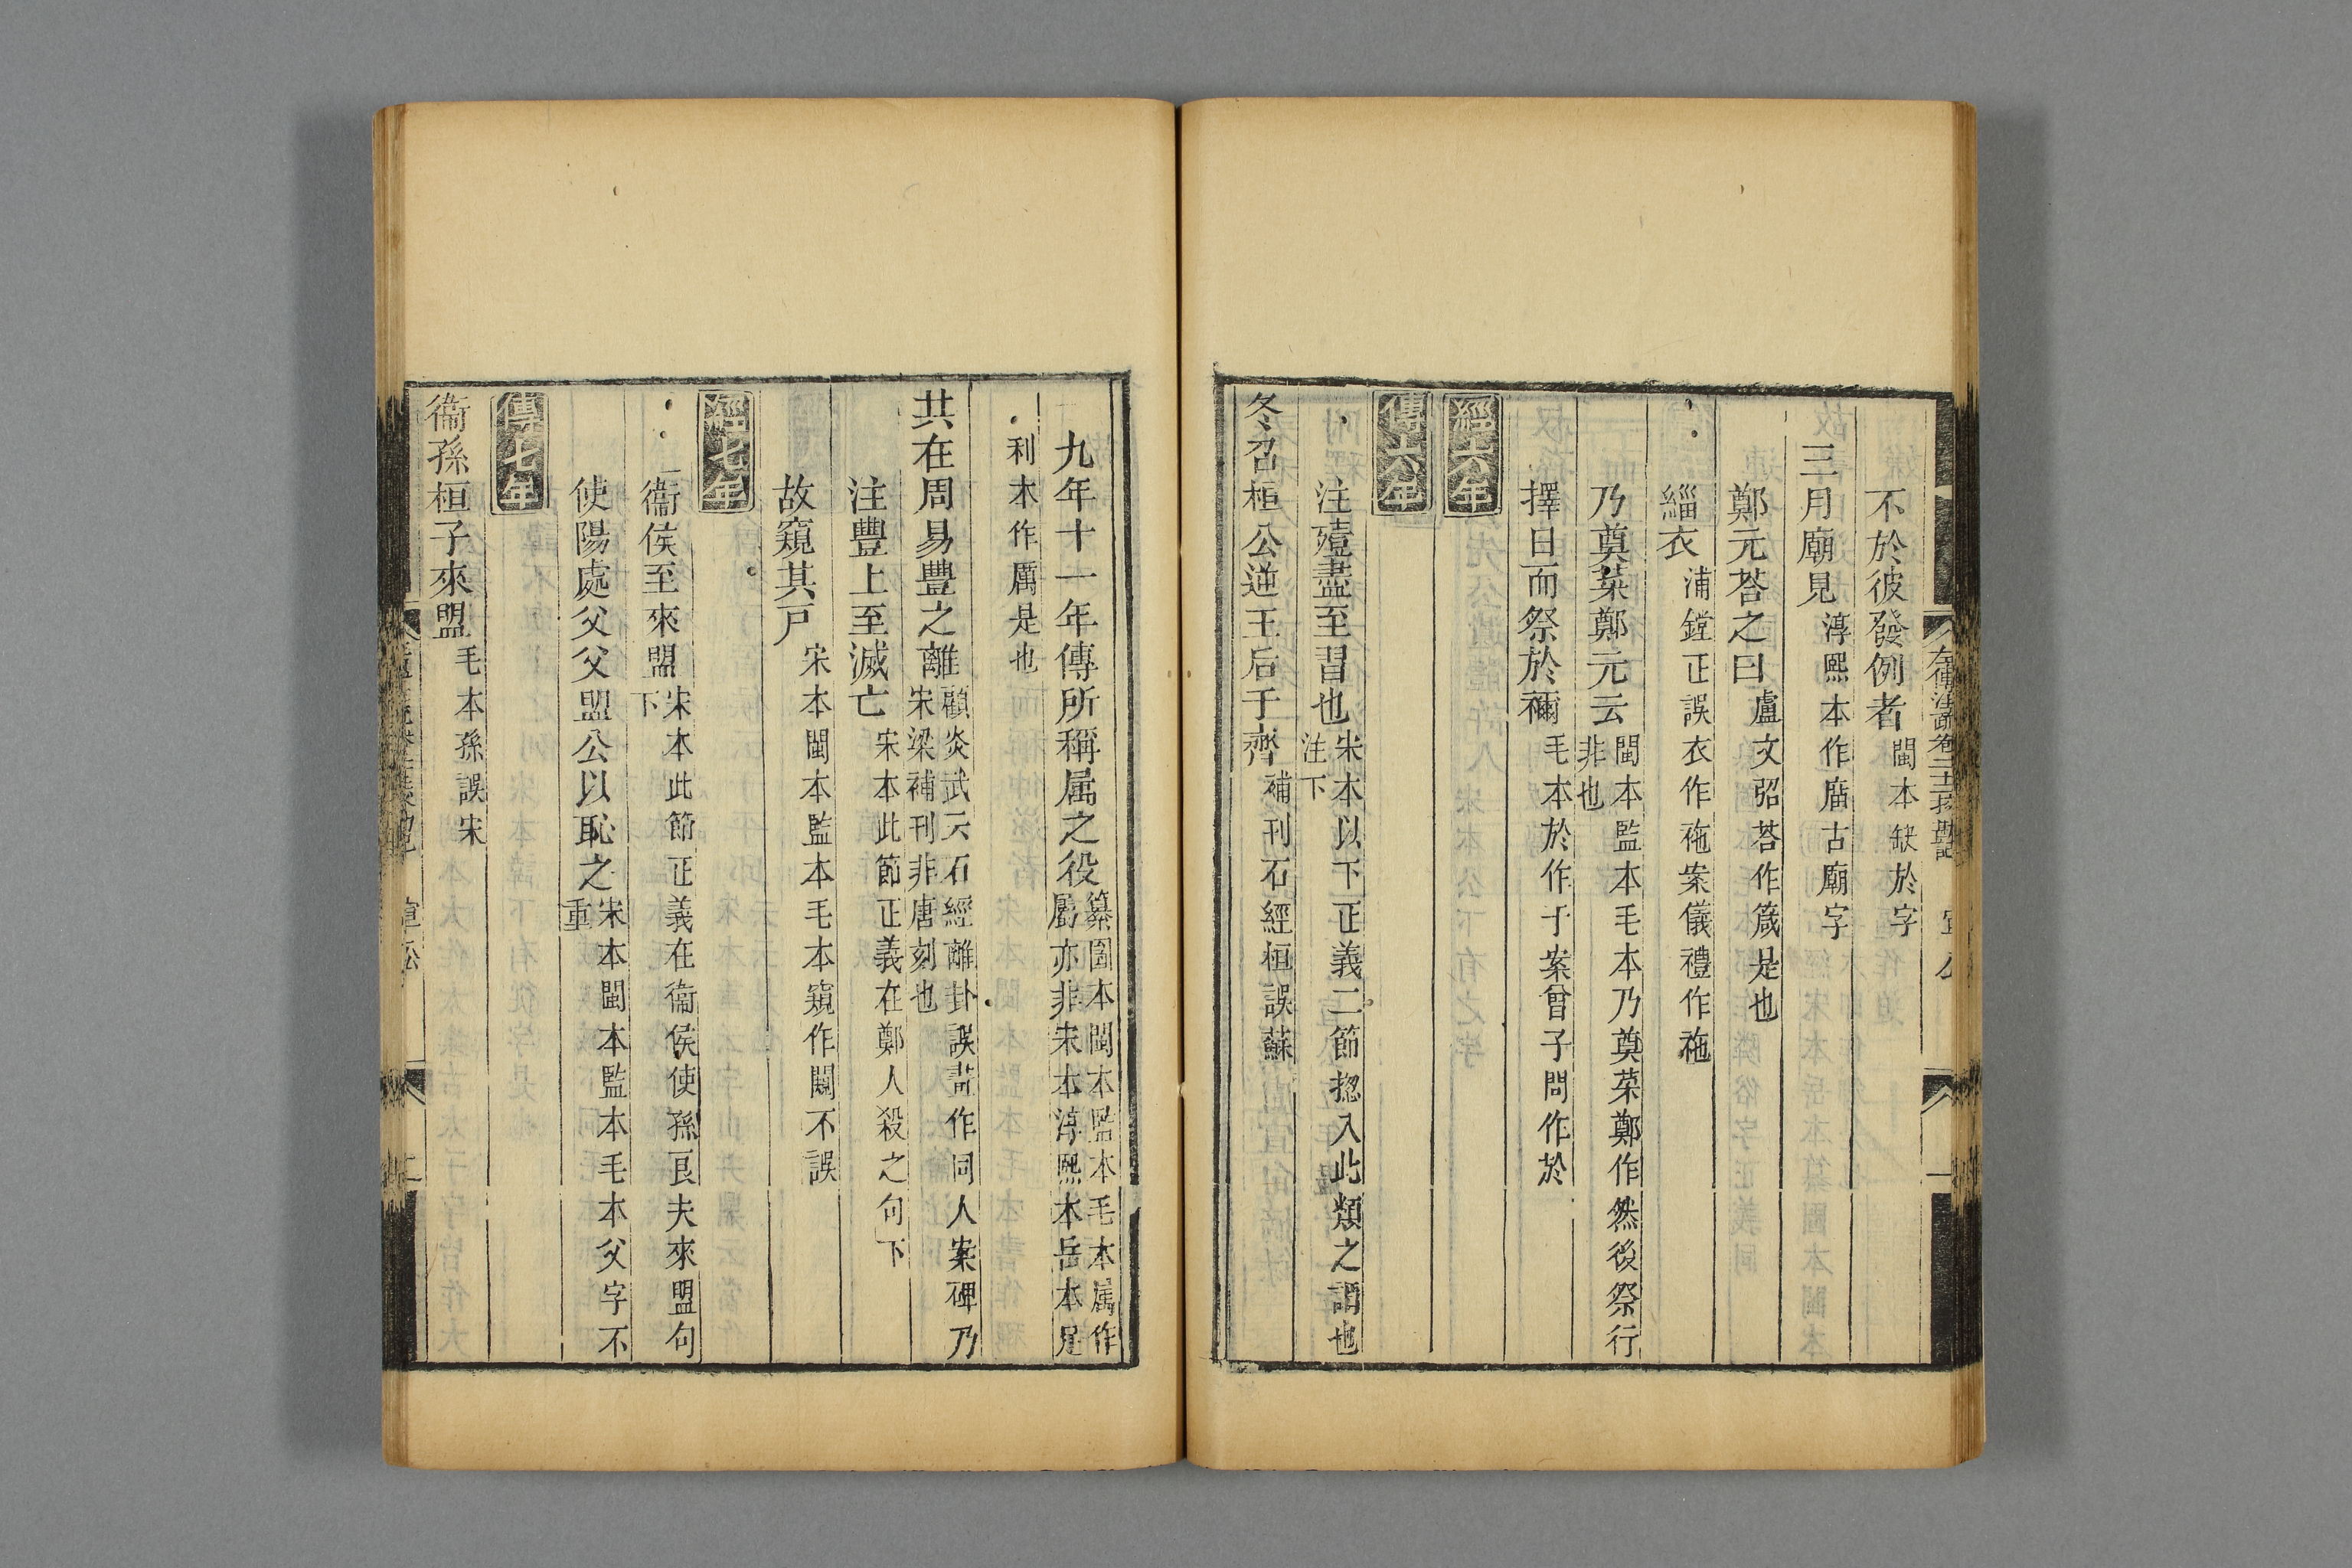 不於彼發例者閩本缺於字
三月廟見淳熙本作庿古廟字
鄭元荅之曰盧文弨荅作箴是也
緇衣浦鏜正誤衣作袘案儀禮作袘
乃奠菜鄭元云閩本監本毛本乃奠菜鄭作然後祭行非也
擇日而祭於禰毛本於作于案曾子問作於
經六年
傳六年
注殪盡至習也宋本以下正義二節揔入此類之謂也注下
冬召桓公逆王后于齊補刊石經桓誤蘇
九年十一年傳所稱属之役纂圖本閩本監本毛本属作厲亦非宋本淳熙本岳本足
利本作厲是也
共在周易豐之離顧炎武云石經離卦誤畫作同人案碑乃宋梁補刊非唐刻也
注豐上至滅亡宋本此節正義在鄭人殺之句下
故窺其戸宋本閩本監本毛本窺作闚不誤
經七年
衞侯至來盟宋本此節正義在衞侯使孫良夫來盟句下
使陽處父父盟公以恥之宋本閩本監本毛本父字不重
傳七年
衞孫桓子來盟毛本孫誤宋